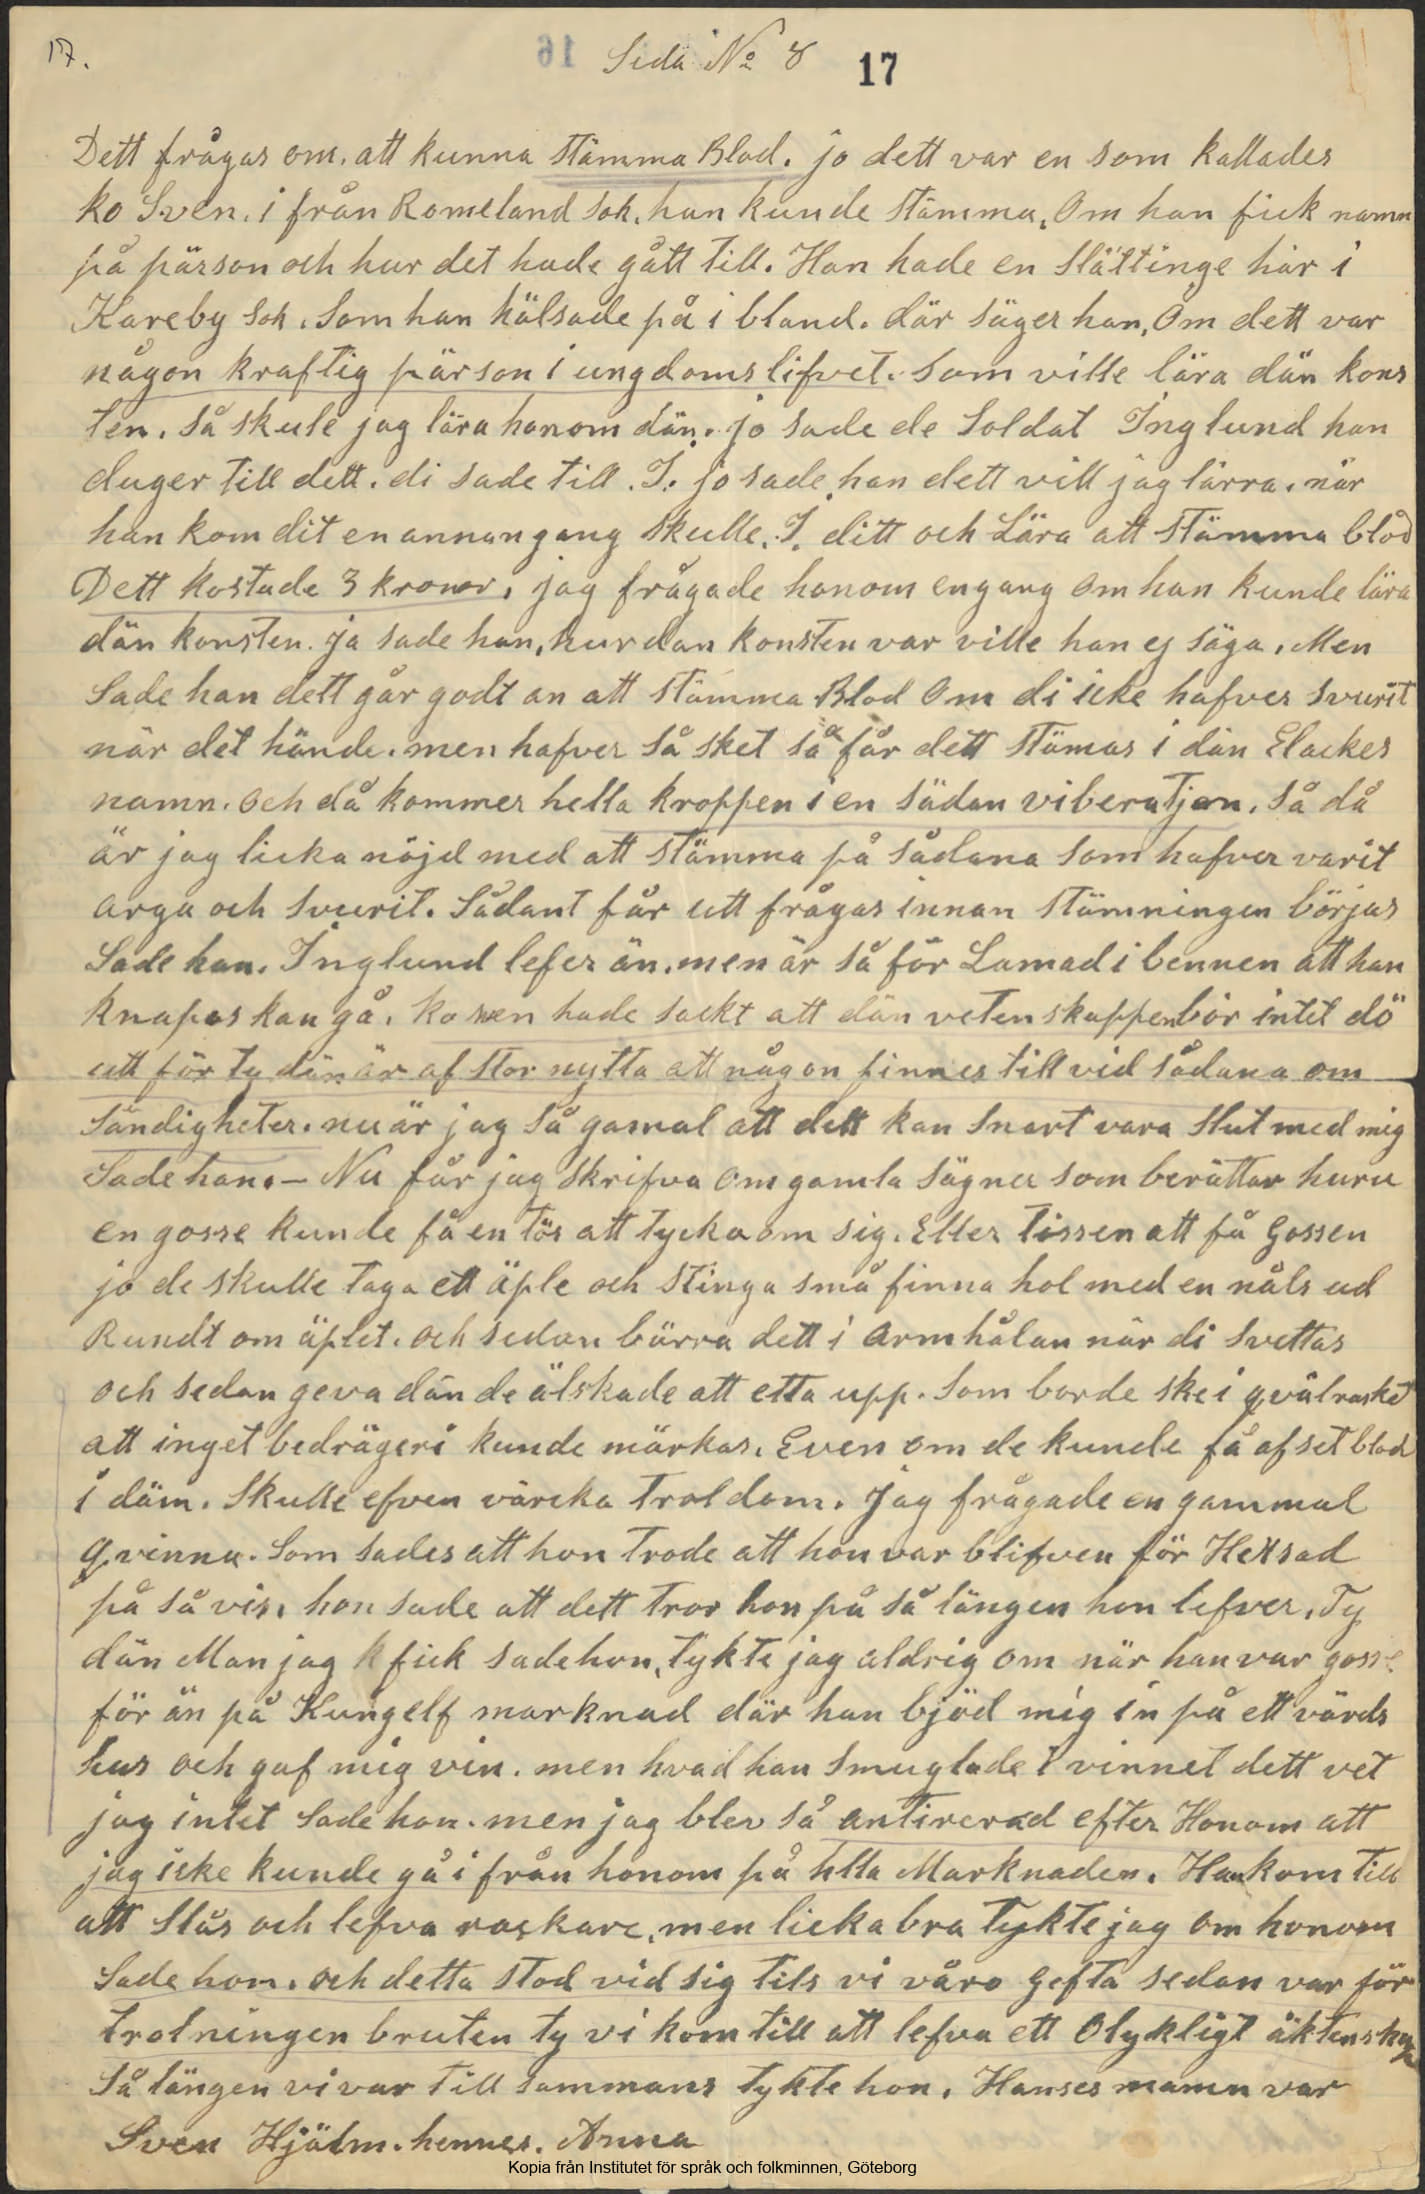 17.
16
Sida No 8
17
Dett frågas om. att kunna stämma Blod. jo dett var en som kallades
ko Sven. i från Romeland sok. han kunde stämma, Om han fick namn
på pärson och hur det hade gått till. Han hade en Slätting här i
Kareby Sok. Som han hälsade på i bland. där säger han, Om dett var
någon kraftig pärson i ungdomslifvet. Som ville lära dän kons
ten. så skule jag lära honom dän. jo sade de Soldat Inglund han
duger till dett. di sade till. I. jo sade han dett vill jag lärra. när
han kom dit en annan gang skulle. I. ditt och Lära att stämma blod
Dett kostade 3 kronor. jag frågade honom engang om han kunde lära
dän konsten. ja sade han, hurdan konsten var ville han ej säga. Men
Sade han dett går godt an att stämma Blod Om di icke hafver svurit
när det hände. men hafver så sket så får dett stämas i dän Elackes
namn. och då kommer hella kroppen i en sådan viberatjon. så då
är jag licka nöjd med att stämma på sådana som hafver varit
arga och svurit. Sådant får utt frågas innan stämningen börjas
Sade han. Inglund lefer än. men är så för Lamad i bennen att han
knapas kan gå. ko sven hade sackt att dän vetenskappen bör intet dö
utt för ty dän är af stor nytta att någon finnes till vid sådana om
ständigheter. nu är jag så gamal att dett kan snart vara slut med mig
Sade han. – Nu får jag skrifva om gamla sägner som berättar huru
en gosse kunde få en tös att tycka om sig. Eller tössen att få Gossen
jo de skulle taga ett äple och stinga små finna hol med en nåls ud
Rundt om äplet. och sedan bärra dett i armhålan när di svettas
och sedan geva dän de älskade att etta upp. Som borde ske i qvälraskt
att inget bedrägeri kunde märkas. Even om de kunde få af set blod
i däm. Skulle efven värcka troldom. jag frågade en gammal
qvinna. Som sades att hon trode att hon var blifven för Hexsad
på så vis. hon sade att dett tror hon på så längen hon lefver. Ty
dän Man jag fick sade hon, tykte jag aldrig om när han var gosse
för än på Kungelf marknad där han bjöd mig in på ett värds
hus och gaf mig vin. men hvad han smuglade i vinnet dett vet
jag intet Sade hon. men jag blev så antirerad efter Honom att
jag icke kunde gå i från honom på hlla Marknaden. Han kom till
att Slås och lefva raskare, men licka bra tykte jag om honom
Sade hon. och detta stod vid sig tils vi våro gefta sedan var för
trolningen bruten ty vi kom till att lefva ett Olykligt äktenskap
Så längen vi var till sammans tykte hon. Hanses mamn var
Sven Hjälm. hennes. Anna
Kopia från Institutet för språk och folkminnen, Göteborg